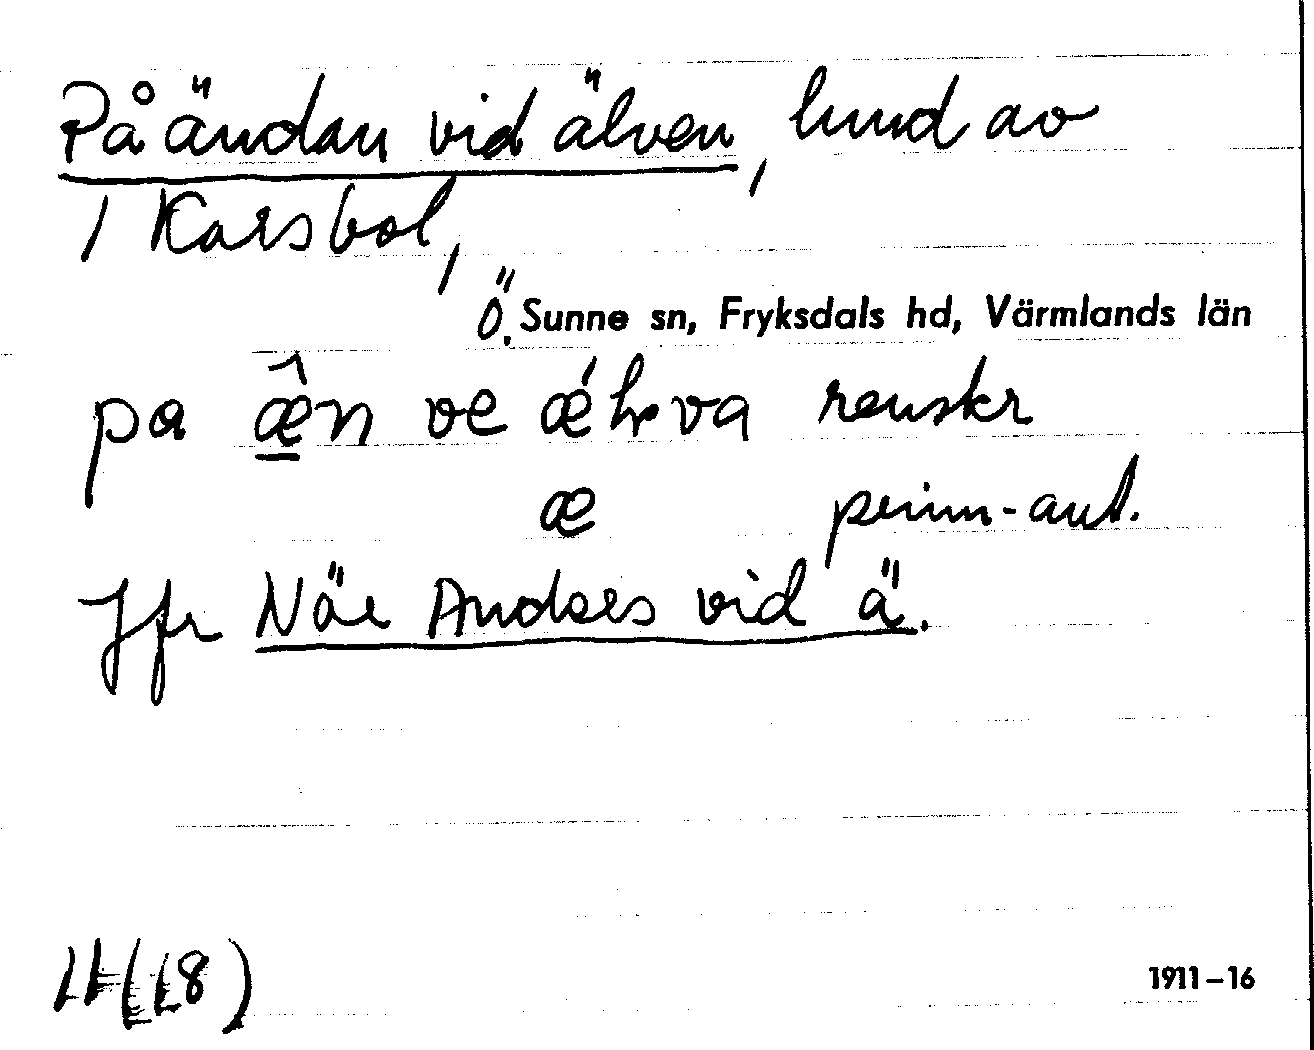 På ändan vid älven, lund av
i Karsbol,
Ö. Sunne sn, Fryksdals hd, Värmlands län
pa æ̂n ve ǽlva renskr
æ penn-ant.
Jfr När Anders vid ä.
(18)
1911-16